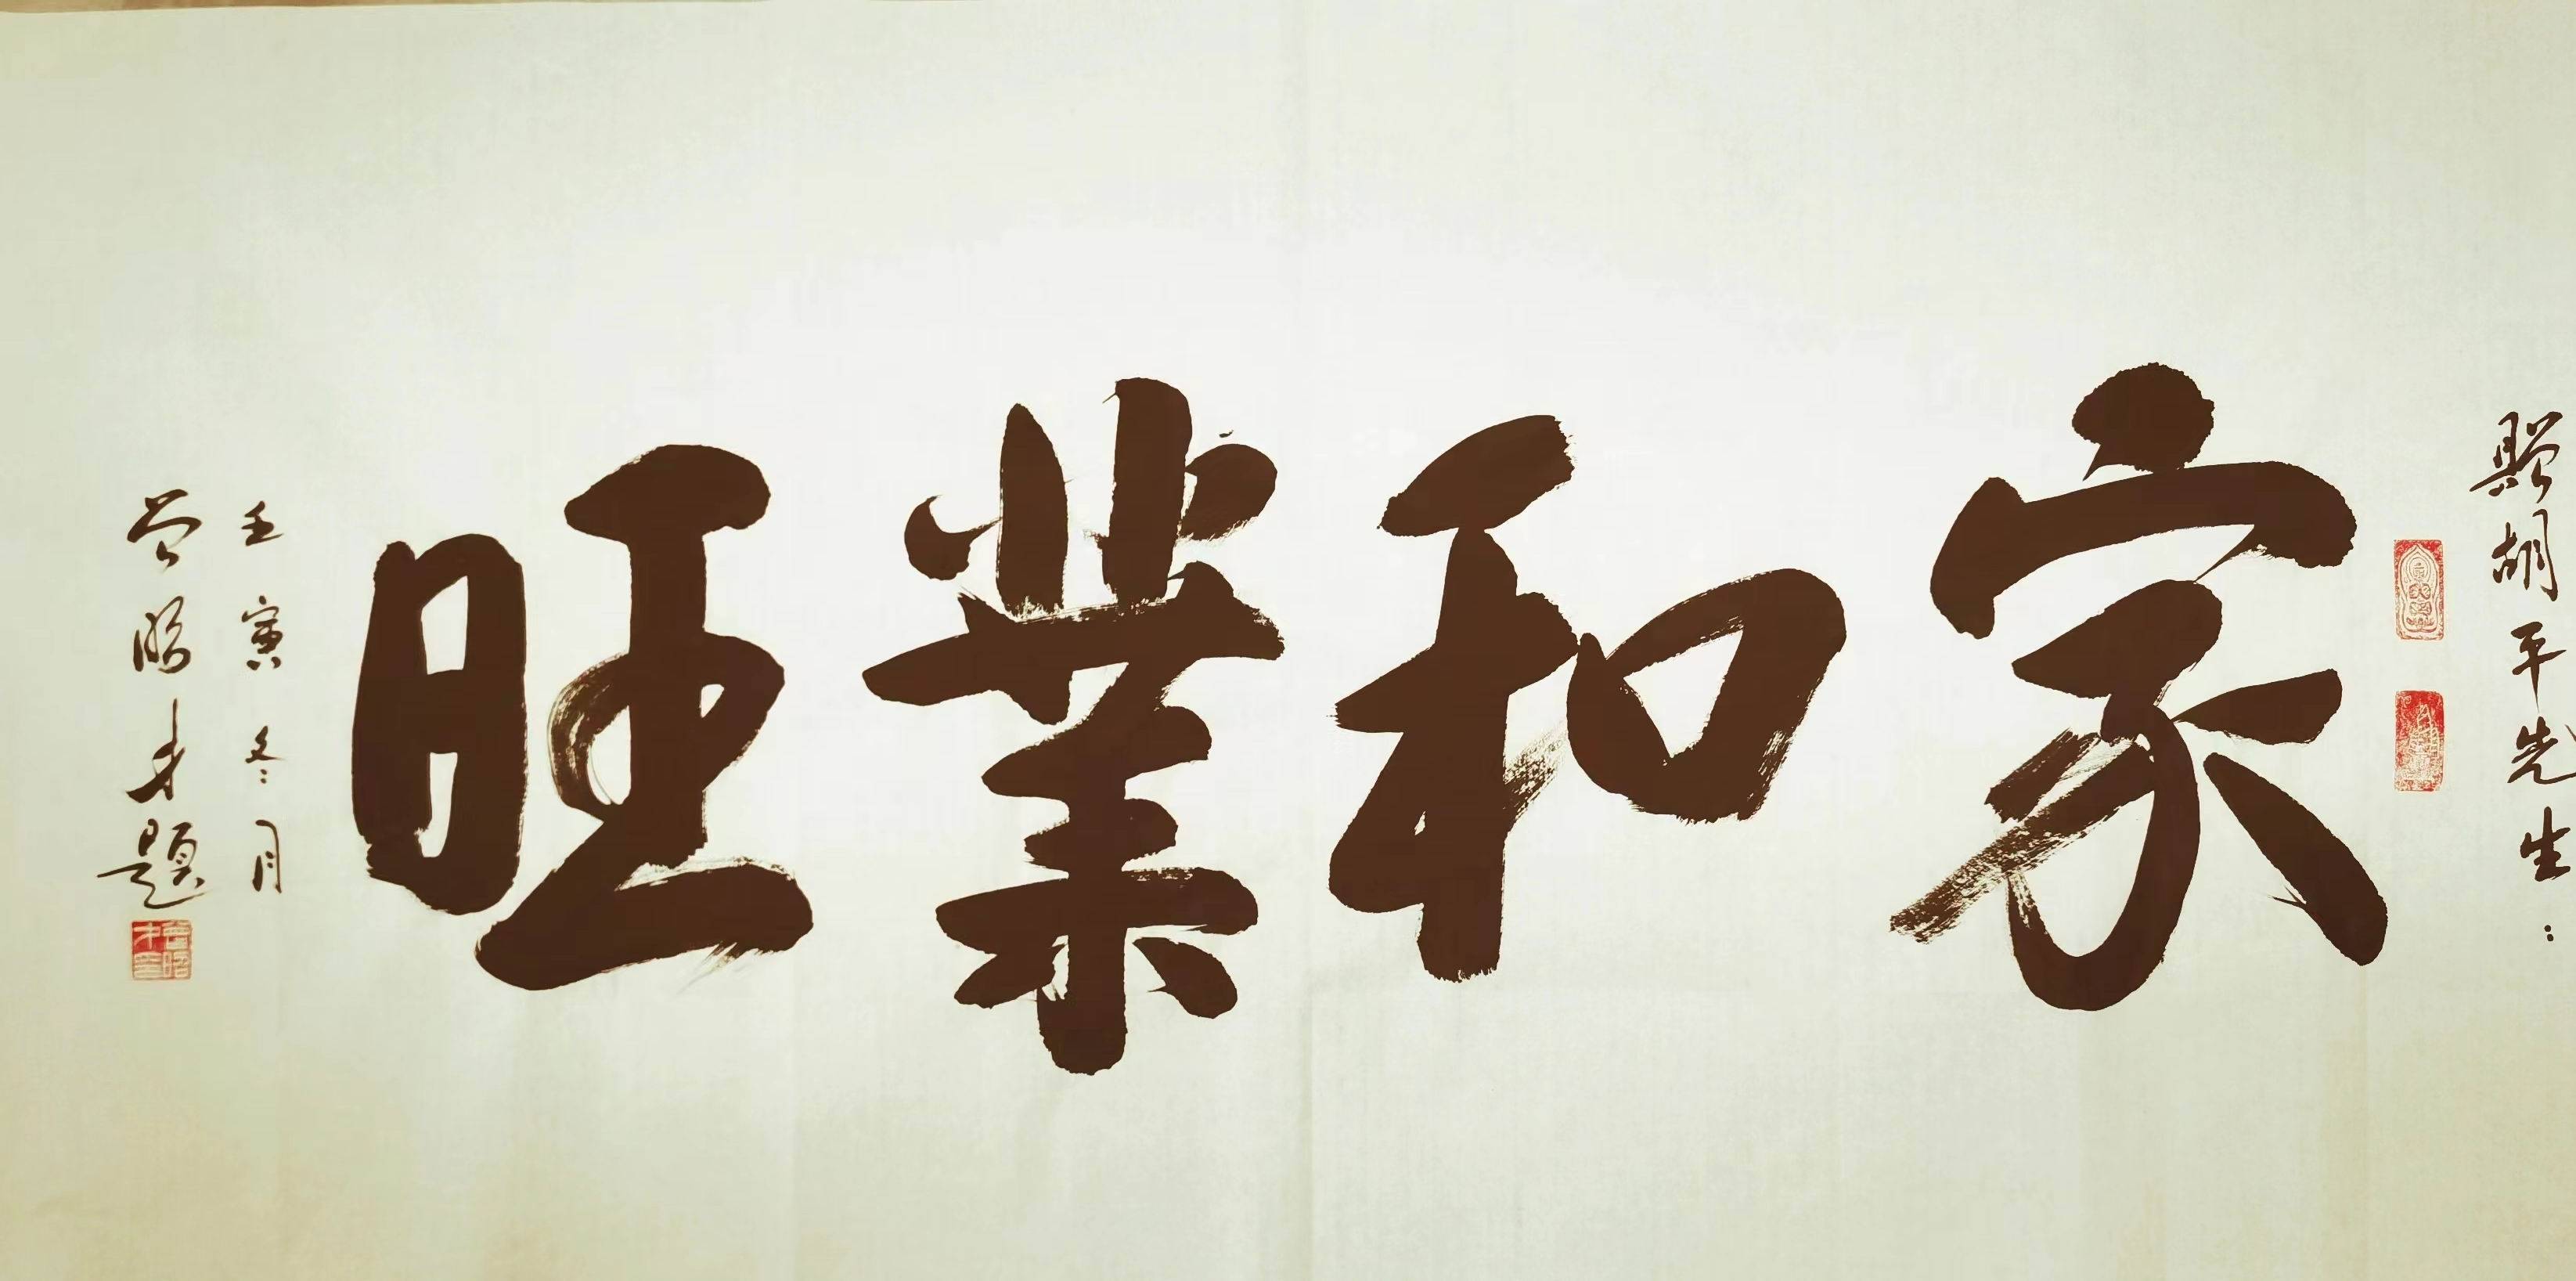 贈胡平先生：
家和業旺
壬寅冬月
曾昭才題